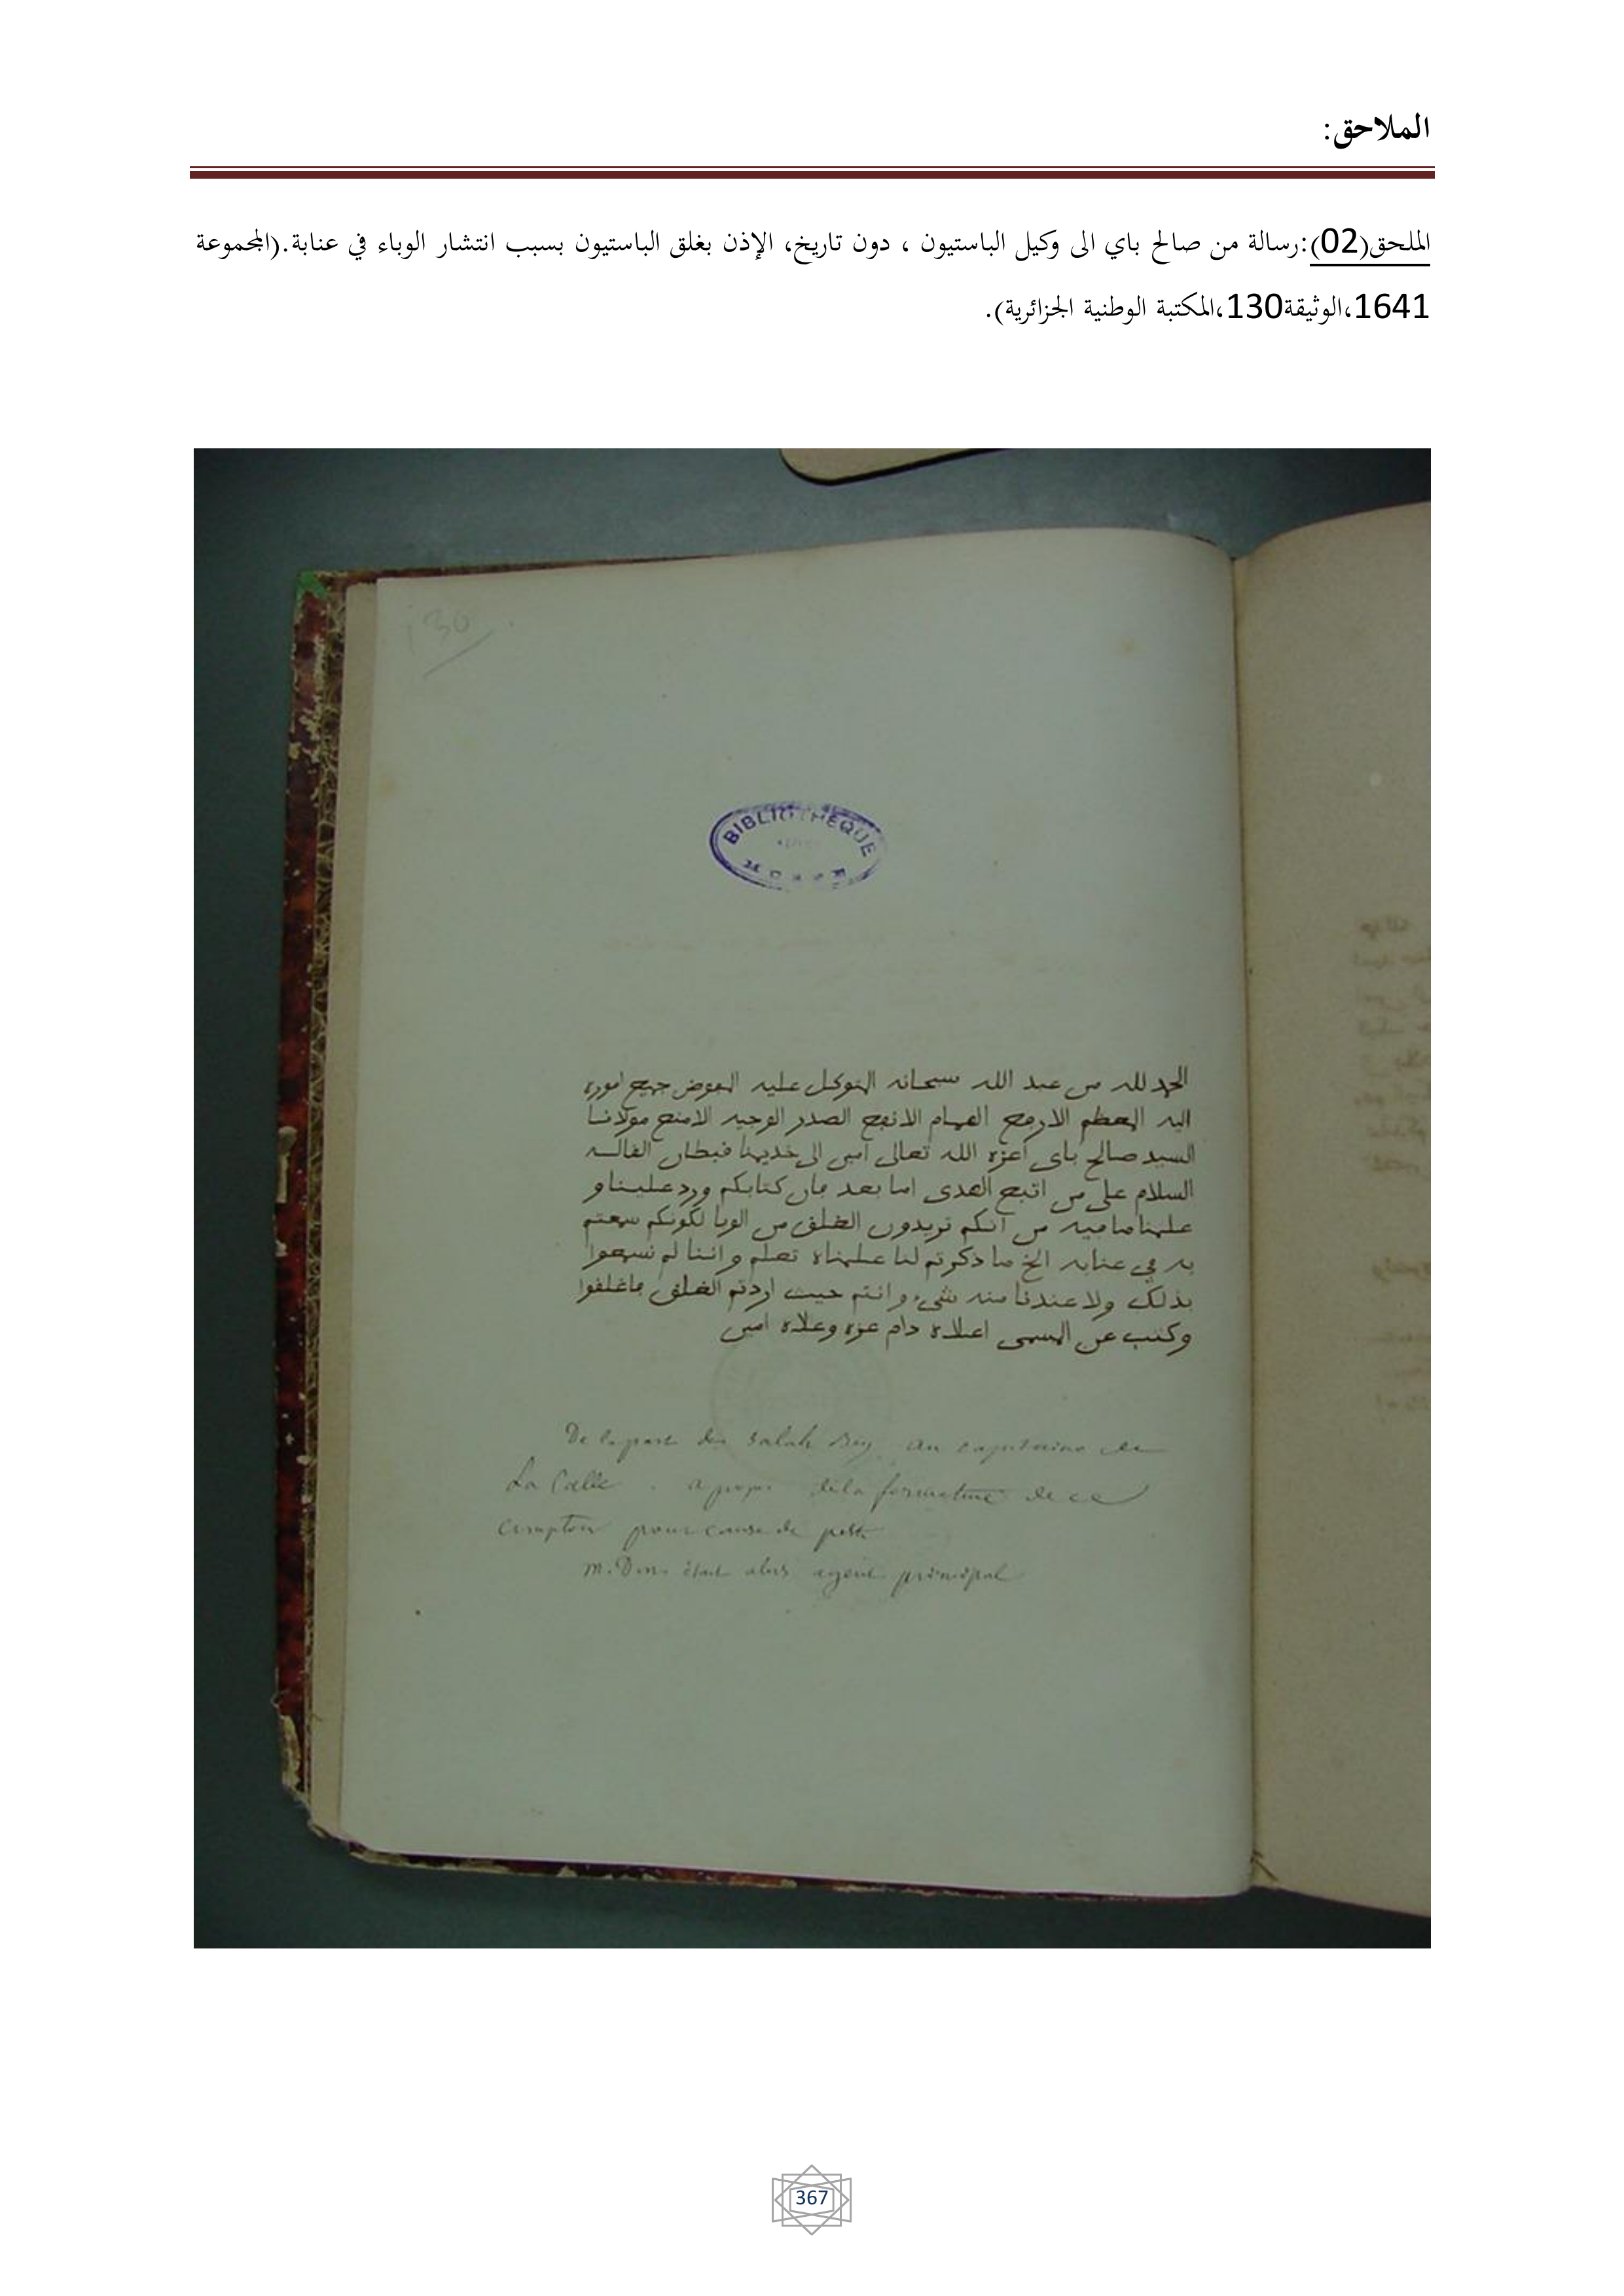 الملاحق:
الملحق(02):رسالة من صالح باي الى وكيل الباستيون ، دون تاريخ، الإذن بغلق الباستيون بسبب انتشار الوباء في عنابة.(المجموعة
1641،الوثيقة130،المكتبة الوطنية الجزائرية).
130
BIBLIOTHEQUE
الحمد لله من عبد الله سبحانه المتوكل عليه المفوض جميع اموره
اليه المعظم الارفع الهمام الانفع الصدر الوجيه الامنع مولانا
السيد صالح باي اعزه الله تعالى امين الى خديمنا قبطان القالـه
السلام على من اتبع الهدى اما بعد فان كتابكم ورد علينا و
علمنا ما فيه من انكم تريدون الغلق من الوبا لكونكم سمعتم
به في عنابه الخ ما ذكرتم لنا علمناه تعلم واننا لم نسمعوا
بذلك ولا عندنا منه شيء وانتم حيث اردتم الغلق فاغلقوا
وكتب عن المسمى اعلاه دام عزه وعلاه امين
De la part de Salah Bey au capitaine de
La Calle . a propos de la fermeture de ce
comptoir pour cause de peste
M. était alors agent principal
367